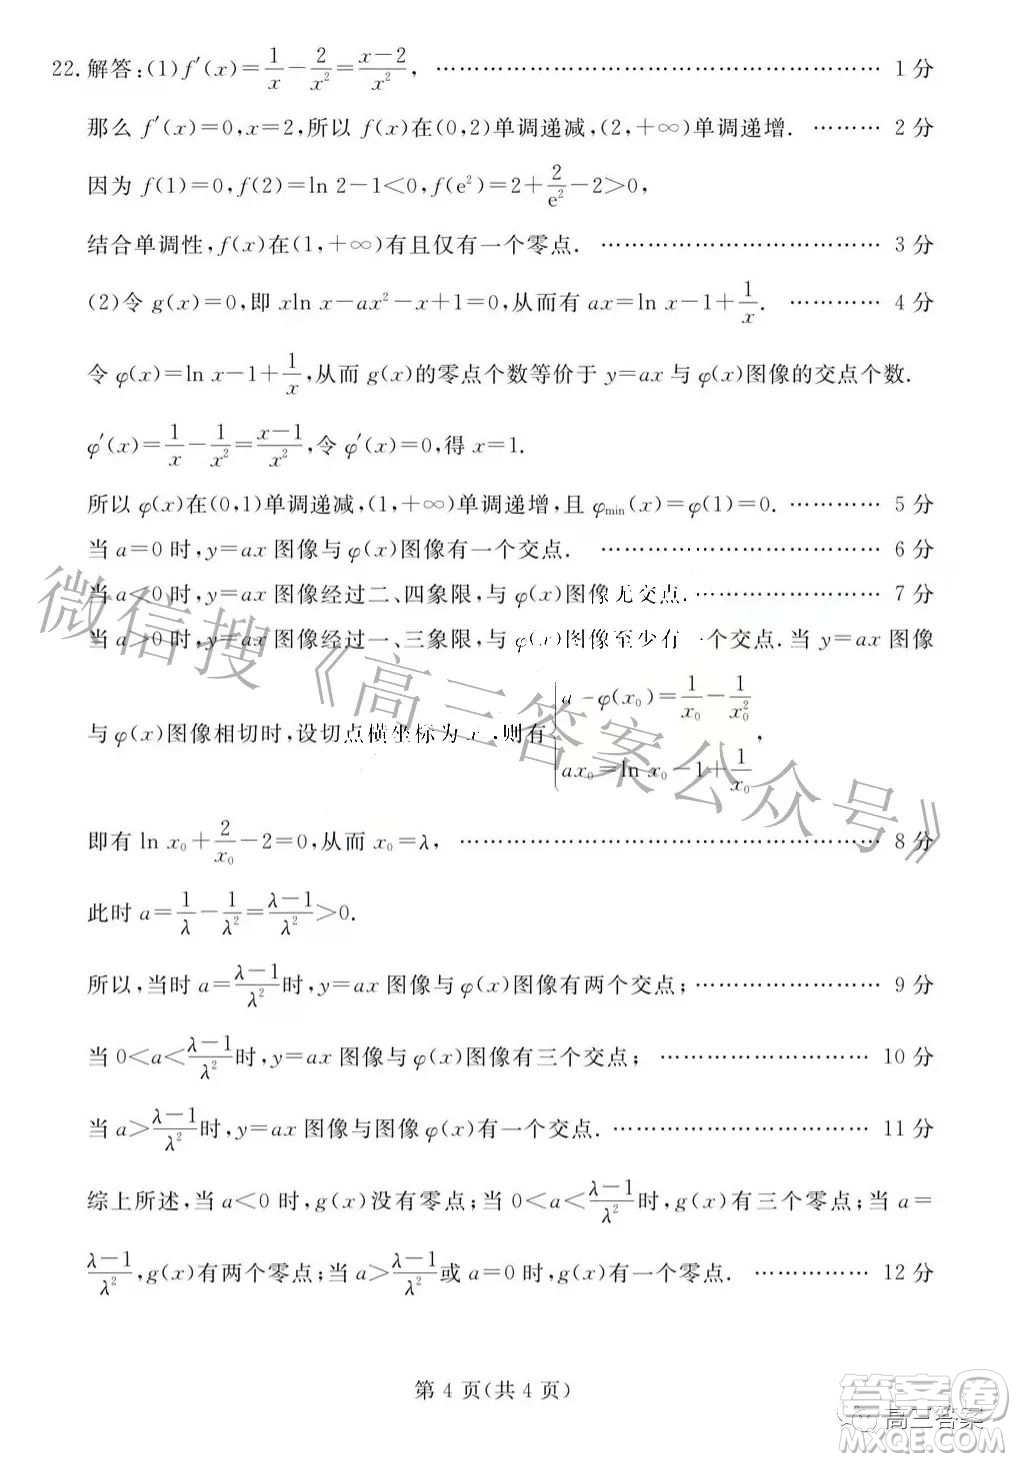 22. 解答:(1) f′(x)=1/x-2/x²=(x-2)/x², ………… 1 分
那么 f′(x)=0,x=2,所以 f(x)在(0,2)单调递减,(2,+∞)单调递增. ……… 2 分
因为 f(1)=0,f(2)=ln 2-1<0,f(e²)=2+2/e²-2>0,
结合单调性,f(x)在(1,+∞)有且仅有一个零点. ………… 3 分
(2)令 g(x)=0,即 xln x-ax²-x+1=0,从而有 ax=ln x-1+1/x. ………… 4 分
令 φ(x)=ln x-1+1/x,从而 g(x)的零点个数等价于 y=ax 与 φ(x)图像的交点个数.
φ′(x)=1/x-1/x²=(x-1)/x²,令 φ′(x)=0,得 x=1.
所以 φ(x)在(0,1)单调递减,(1,+∞)单调递增,且 φmin(x)=φ(1)=0. ………… 5 分
当 a=0 时,y=ax 图像与 φ(x)图像有一个交点. ………… 6 分
当 a<0 时,y=ax 图像经过二、四象限,与 φ(x)图像无交点. ………… 7 分
当 a>0 时,y=ax 图像经过一、三象限,与 φ(x)图像至少有一个交点. 当 y=ax 图像
与 φ(x)图像相切时,设切点横坐标为 x 则有 { a φ(x₀)=1/x₀-1/x₀²
ax₀=ln x₀-1+1/x₀ ,
即有 ln x₀+2/x₀-2=0,从而 x₀=λ, ………… 8 分
此时 a=1/λ-1/λ²=(λ-1)/λ²>0.
所以,当时 a=(λ-1)/λ²时,y=ax 图像与 φ(x)图像有两个交点; ………… 9 分
当 0<a<(λ-1)/λ²时,y=ax 图像与 φ(x)图像有三个交点; ………… 10 分
当 a>(λ-1)/λ²时,y=ax 图像与图像 φ(x)有一个交点. ………… 11 分
综上所述,当 a<0 时,g(x)没有零点;当 0<a<(λ-1)/λ²时,g(x)有三个零点;当 a=
(λ-1)/λ²,g(x)有两个零点;当 a>(λ-1)/λ²或 a=0 时,g(x)有一个零点. ………… 12 分
第 4 页(共 4 页)
微信搜《高三答案公众号》
高三答案
答案卷
MXQE.COM